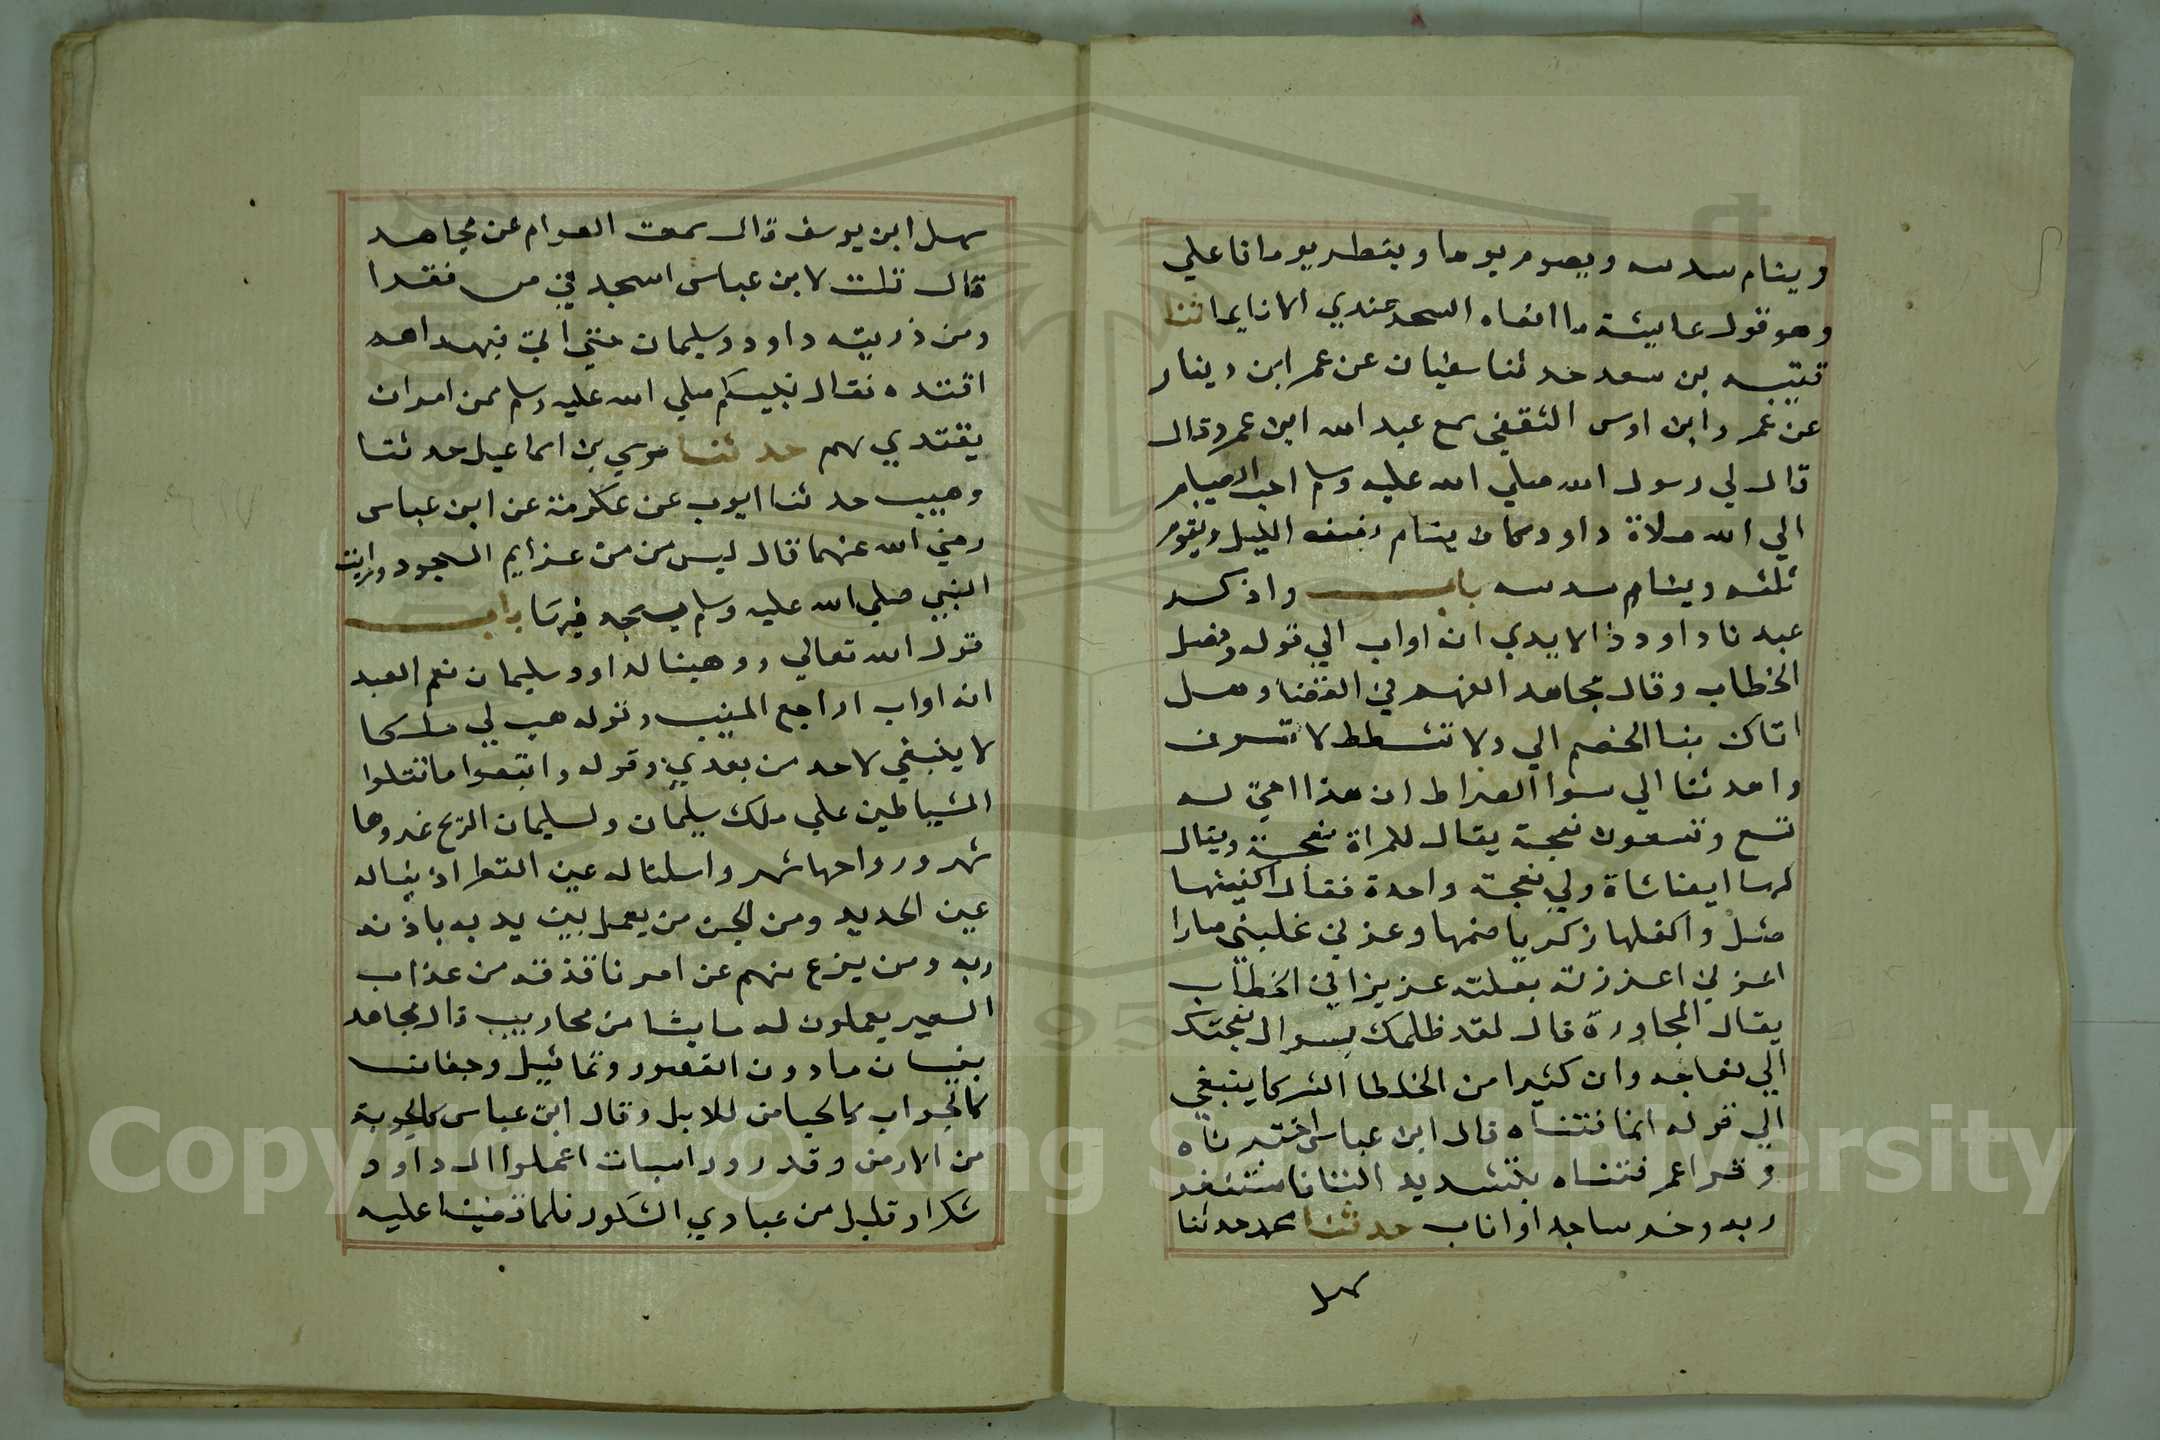 وينام سدسه ويصوم يوما ويفطر يوما قا علي
وهو قول عايشة ما الفاه السحر عندي الا نايما ثنا
قتيبه بن سعد حدثنا سفيان عن عمر ابن دينار
عن عمر وابن اوس الثقفي سمع عبد الله ابن عمر وقال
قال لي رسول الله صلي الله عليه وسلم احب الصيام
الي الله صلاة داود كان ينام نصفه الليل ويقوم
ثلثه وينام سدسه باب واذكر
عبدنا داود ذا الايدي انه اواب الي قوله وفصل
الخطاب وقال مجاهد الفهم في القضا وهل
اتاك نبا الخصم الي ولا تشطط لا تسرف
واهدنا الي سوا الصراط ان هذا اخي له
تسع وتسعون نعجة يقال للمراة نعجة ويقال
لها ايضا شاة ولي نعجة واحدة فقال اكفينها
مثل واكفلها زكريا ضمها وعزني غلبني صارا
اعز لي اعززته بعلته عزيزا في الخطاب
يقال المجاورة قال لقد ظلمك بسوال نعجتك
الي نعاجه وان كثيرا من الخلطا الشركا يبتغي
الي قوله انما فتناه قال ابن عباس اختبرناه
وقرا عمر فتناه بتشديد التا فاستغفر
ربه وخر ساجدا واناب حدثنا محمد حدثنا
سهل
سهل ابن يوسف قال سمعت العوام عن مجاهد
قال قلت لابن عباس اسجد في ص فقرا
ومن ذريته داود وسليمان حتي اتي فبهداهم
اقتده فقال نبيكم صلي الله عليه وسلم ممن امر ان
يقتدي بهم حدثنا موسي بن اسماعيل حدثنا
وهيب حدثنا ايوب عن عكرمة عن ابن عباس
رضي الله عنهما قال ليس من من عزايم السجود ورايت
النبي صلي الله عليه وسلم يسجد فيها باب
قول الله تعالي ووهبنا لداود سليمان نعم العبد
انه اواب الراجع المنيب وقوله هب لي ملكا
لا ينبغي لاحد من بعدي وقوله واتبعوا ما تتلوا
الشياطين علي ملك سليمان ولسليمان الريح غدوها
شهر ورواحها شهر واسلنا له عين القطر اذبنا له
عين الحديد ومن الجن من يعمل بين يديه باذن
ربه ومن يزغ منهم عن امرنا نذقه من عذاب
السعير يعملون له ما يشا من محاريب قال مجاهد
بنيان مادون القصور وتماثيل وجفان
كالجواب كالحياض للابل وقال ابن عباس كالجوبة
من الارض وقدور راسيات اعملوا ال داود
شكرا وقليل من عبادي الشكور فلما قضينا عليه
Copyright © King Saud University